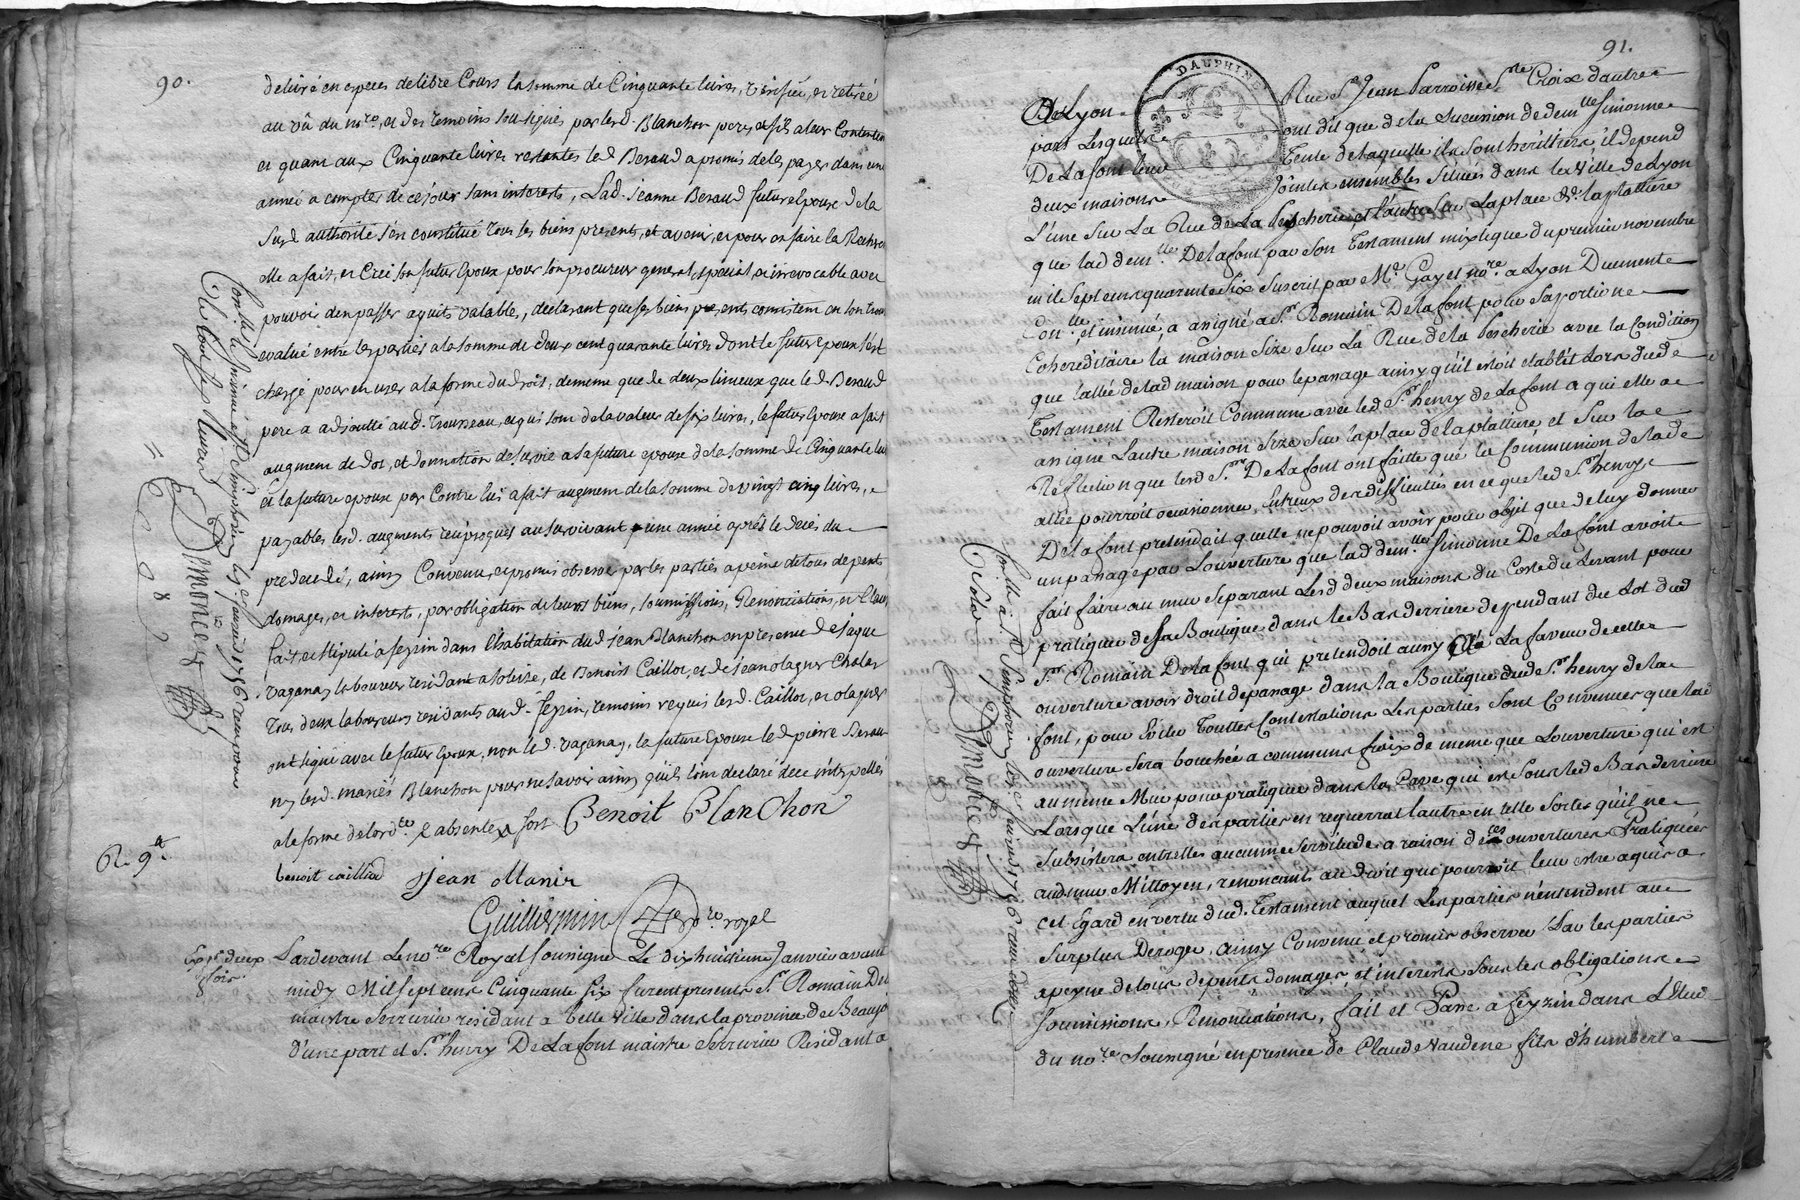 90.
delivré en especes de libre Cours la somme de Cinquante livres, verifiée, et retirée
au vû du nore, et des temoins sou-signés par lesd. Blanchon pere et fils a leur Contentem
et quant aux Cinquante livres restantes led Beraud a promis de les payer dans une
année a compter de ce jour sans interests, Lad. Jeanne Beraud future Epouse de la
Susd authorité s'en constitué tous les biens presents, et avenir, et pour en faire la Recher
elle a fait, et Créé son futur Epoux pour son procureur general, special et irrevocable avec
pouvoir d'en passer aquits valable, declarant que ses biens presents consistent en son trou
evalué entre les parties a la somme de deux cent quarante livres dont le futur Epoux s'est
chargé pour en user a la forme du droit, de meme que de deux linceux que led Beraud
pere a adjoutté aud. Trousseau, et qui sont de la valeur de six livres, le futur Epoux a fait
augment de dot, et donnation de survie a sa future epouse de la somme de Cinquante liv
et la future epouse par Contre lui a fait augment de la somme de vingt cinq livres,
payables lesd. augments reciproques au survivant une année après le decés du
predecedé, ainsy Convenu, et promis observer par les parties a peine de tous depents
domages, et interests, par obligation de leurs biens, soumissions, Renonciations, et Claus
fait et stipulé a feyzin dans l'habitation dud Jean Blanchon en presence de Jaque
Vaganay laboureur residant a Soleize, de Benoist Caillot, et de Jean olagner Chales
tous deux laboureurs residants aud. feyzin, temoins requis lesd. Caillot, et olagner
ont signé avec le futur Epoux, non led. vaganay, la future Epouse led pierre Beraud
ny lesd. mariés Blanchon pour ne savoir ainsy qu'ils l'ont declaré de ce interpellés
a la forme de lordce & absentes fort Benoit Blanchon
R. 9s.
benoit caillod Jean
Guillermin nore royal
Expié deux fois
Pardevant Le nore Royal soussigné Le dix huitieme Janvier avant
midy Mil sept cens Cinquante six furent presents Sr. Romain Del
maistre serrurier residant a belle ville dans la province de Beaujo
d'une part et Sr. henry De La font maistre serrurier Residant a
91.
DAUPHINE
De Lyon Rue St Jean Parroisse Ste. Croix d'autre
part Lesquels ont dit que de la succession de demlle Simonne
De La font leur Tente de laquelle ils sont héritiers, il depend
deux maisons jointes ensembles situées dans la Ville de Lyon
L'une sur La Rue de La Pescherie, et l'autre sur La place de la platiere
que lad demlle. De la font par son Testament mixtique du premier novembre
mil sept cens quarante six suscrit par Me. Gayet nore a Lyon Duement
Conllé, et insinué, a assigné a Sr. Romain De la font pour sa portion
Cohereditaire la maison size sur La Rue de la Pescherie avec la Condition
que l'allée de lad maison pour le passage ainsy qu'il estoit etablit Lors dud
Testament Resteroit Commune avec led Sr. henry de La font a qui elle a
assigné L'autre maison size sur la place de la platiere, et sur la
Reflection que lesd Srs. De La font ont faitte que la Communion de lad
allée pourroit occasionner Entreux des difficultés en ce que led Sr henry
De La font pretendait quelle ne pouvoit avoir pour objet que de luy donner
un passage par L'ouverture que lad demlle Simonne De La font avoit
fait faire au mur separant Lesd deux maisons du Coste du Levant pour
pratiquer de sa Boutique dans le Bas derriere dependant du Lot dud
Sr. Romain De La font qui pretendoit aussy a La faveur de cette
ouverture avoir droit de passage dans la Boutique dud Sr. henry de la
font, pour Eviter Touttes Contestations Les parties sont Convenues que lad
ouverture sera bouchée a communs fraix de meme que L'ouverture qui est
au même Mur pour pratiquer dans la Cave qui est sous led Bas derriere
Lorsque L'une des parties en requerra l'autre en telle sorte qu'il ne
subsistera entrelles aucune servitude a raison de ces ouvertures Pratiquées
aud mur Mittoyen, renoncants au droit qui pourroit leur estre aquis a
cet Egard en vertu dud. Testament auquel Les parties n'entendent au
surplus Deroger, ainsy Convenu et promis observer Par les parties
a peyne de tous depents domages, et interests sous les obligations
soumissions, Renonciations, fait et Passé a feyzin dans L'Etude
du nore soussigné en presence de Claude Vaudene fils d'humbert